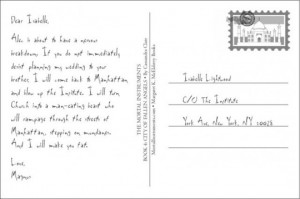 Dear Isabelle,
Alec is about to have a nervous
breakdown. If you do not immediately
desist planning my wedding to your
brother, I will come back to Manhattan,
and blow up the Institute. I will turn
Church into a man-eating beast who
will rampage through the streets of
Manhattan, stepping on mundanes.
And I will make you fat.
Love,
Magnus
THE MORTAL INSTRUMENTS
BOOK 4: CITY OF FALLEN ANGELS • By Cassandra Clare
Isabelle Lightwood
C/O The Institute
York Ave, New York, NY